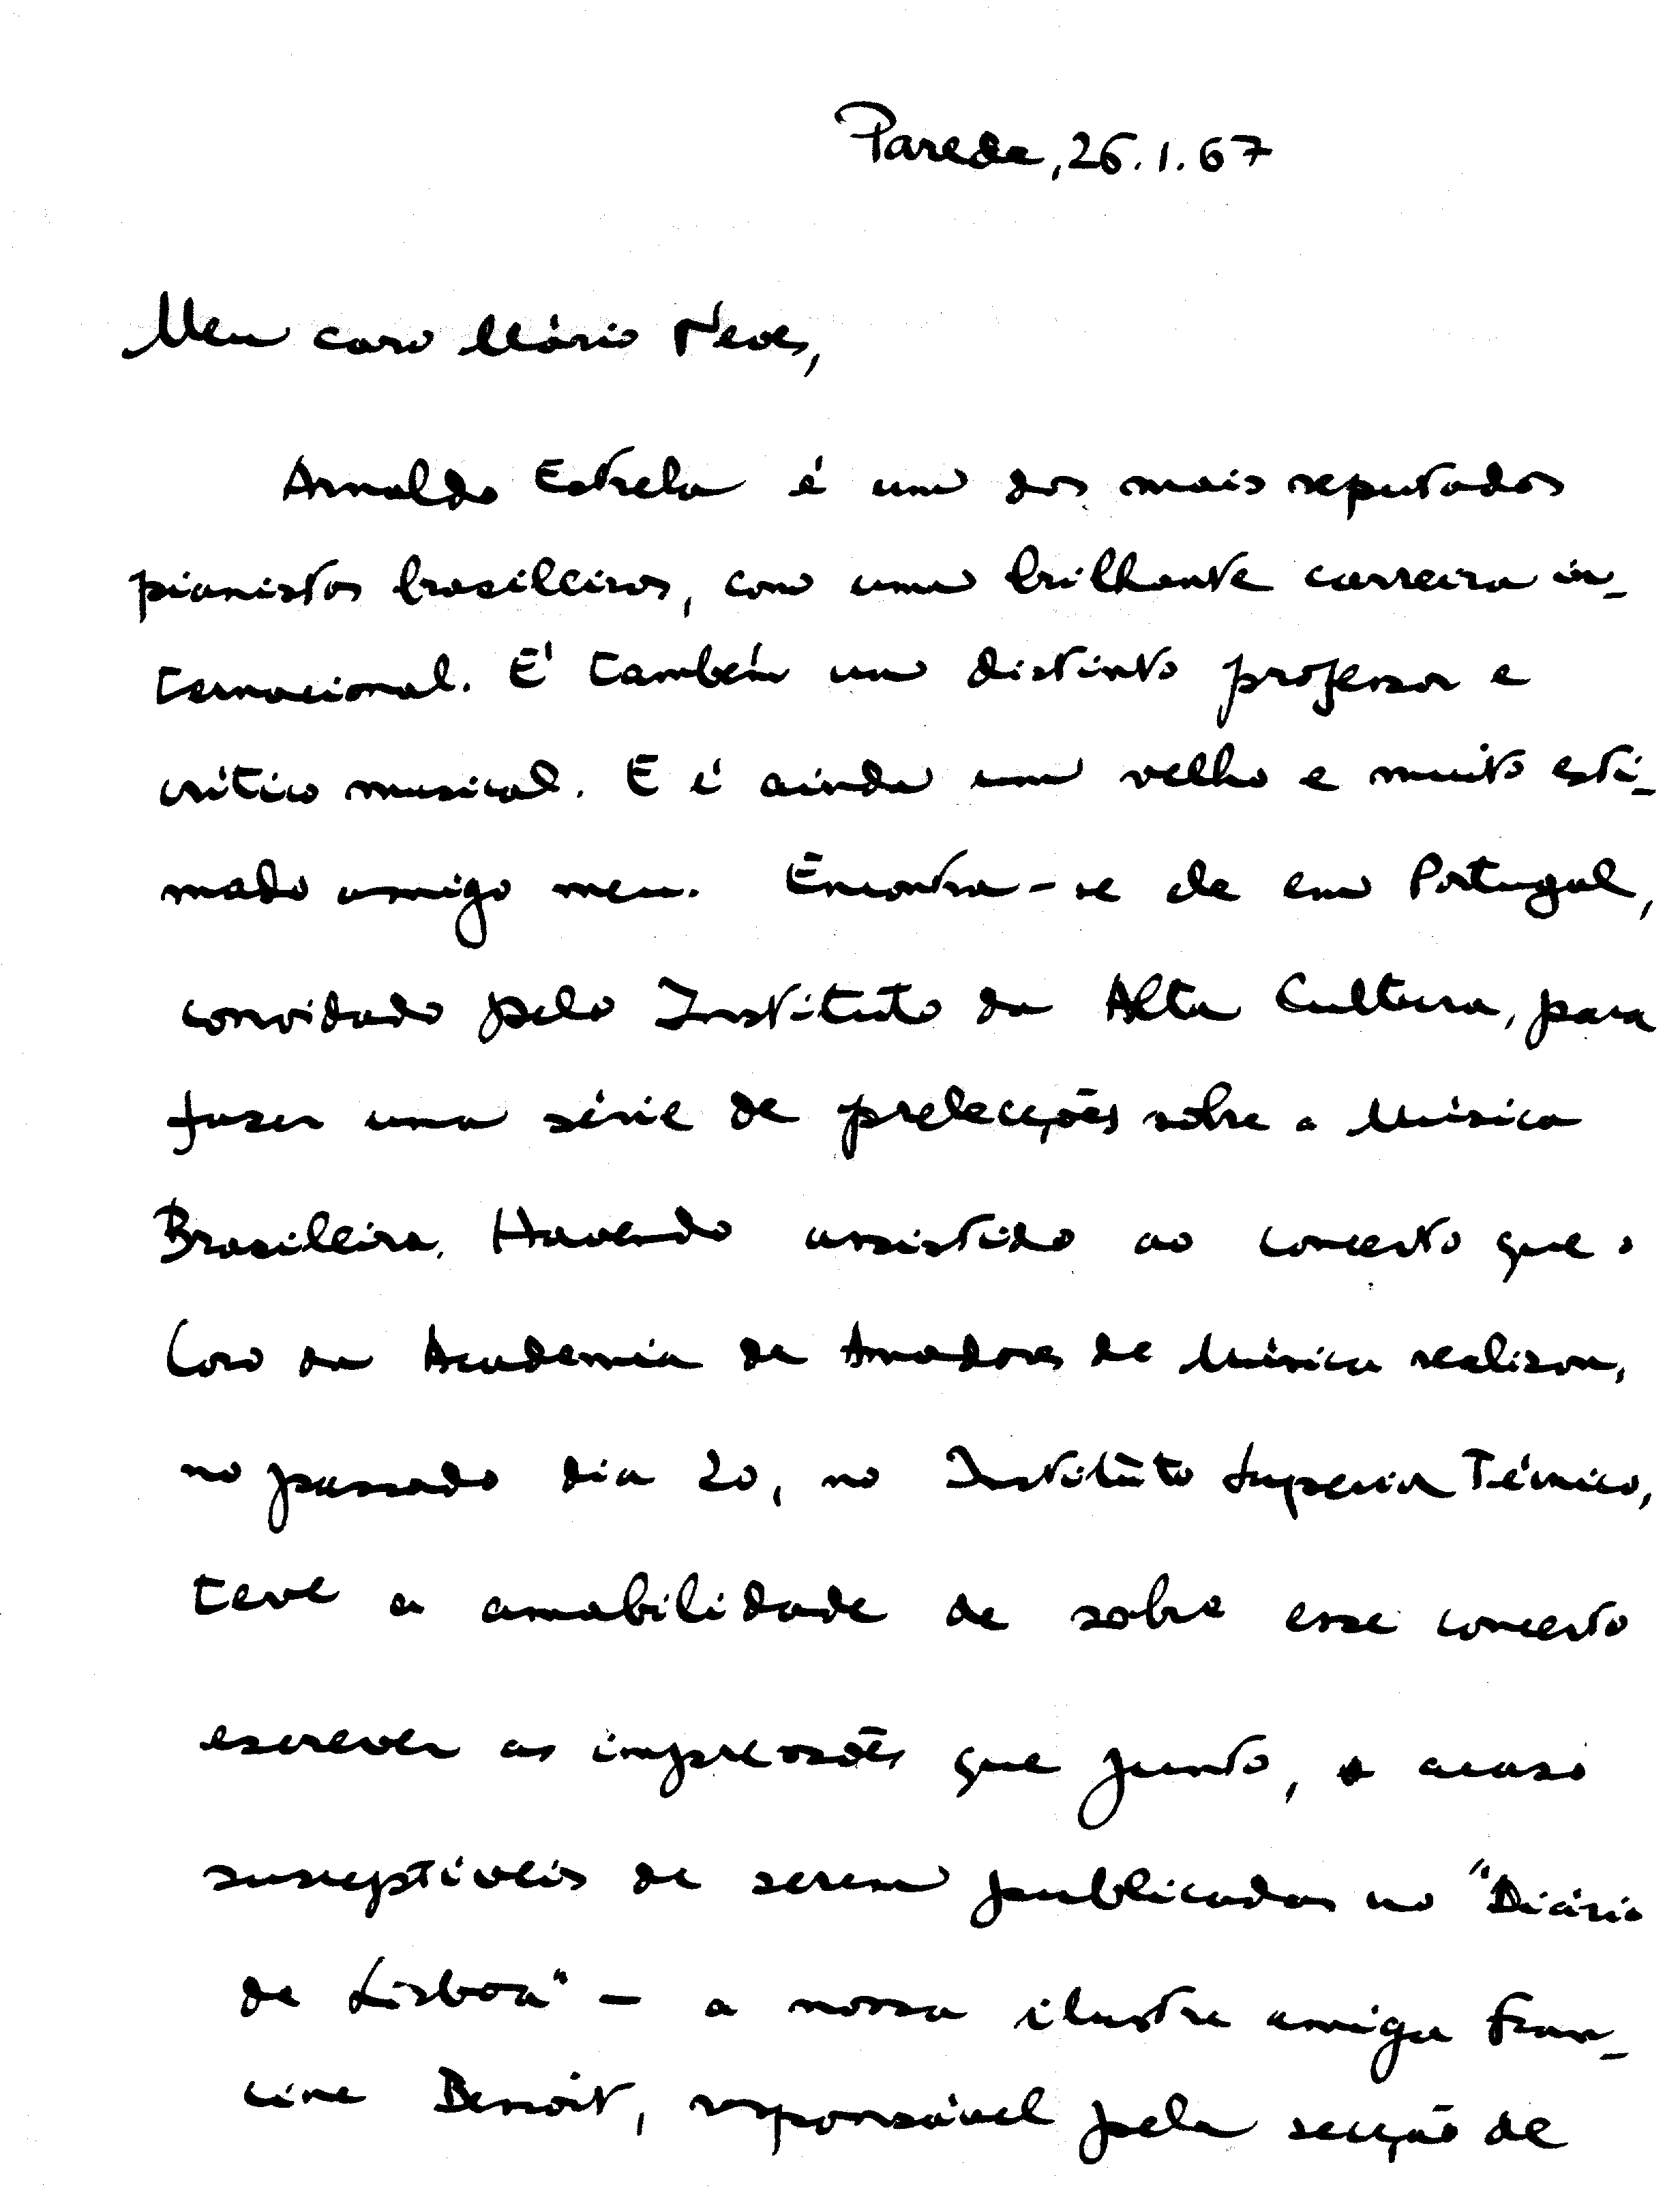 Parede, 26.1.67
Meu caro Mário Neves,
Arnaldo Estrela é um dos mais reputados
pianistas brasileiros, com uma brilhante carreira in-
ternacional. É também um distinto professor e
crítico musical. E é ainda um velho e muito esti-
mado amigo meu. Encontra-se ele em Portugal,
convidado pelo Instituto da Alta Cultura, para
fazer uma série de prelecções sôbre a Música
Brasileira. Havendo assistido ao concerto que o
Coro da Academia de Amadores de Música realizou,
no passado dia 20, no Instituto Superior Técnico,
teve a amabilidade de sobre esse concerto
escrever as impressões que junto, acaso
susceptíveis de serem publicadas no "Diário
de Lisboa" — a nossa ilustre amiga Fran-
cine Benoit, responsável pela secção de